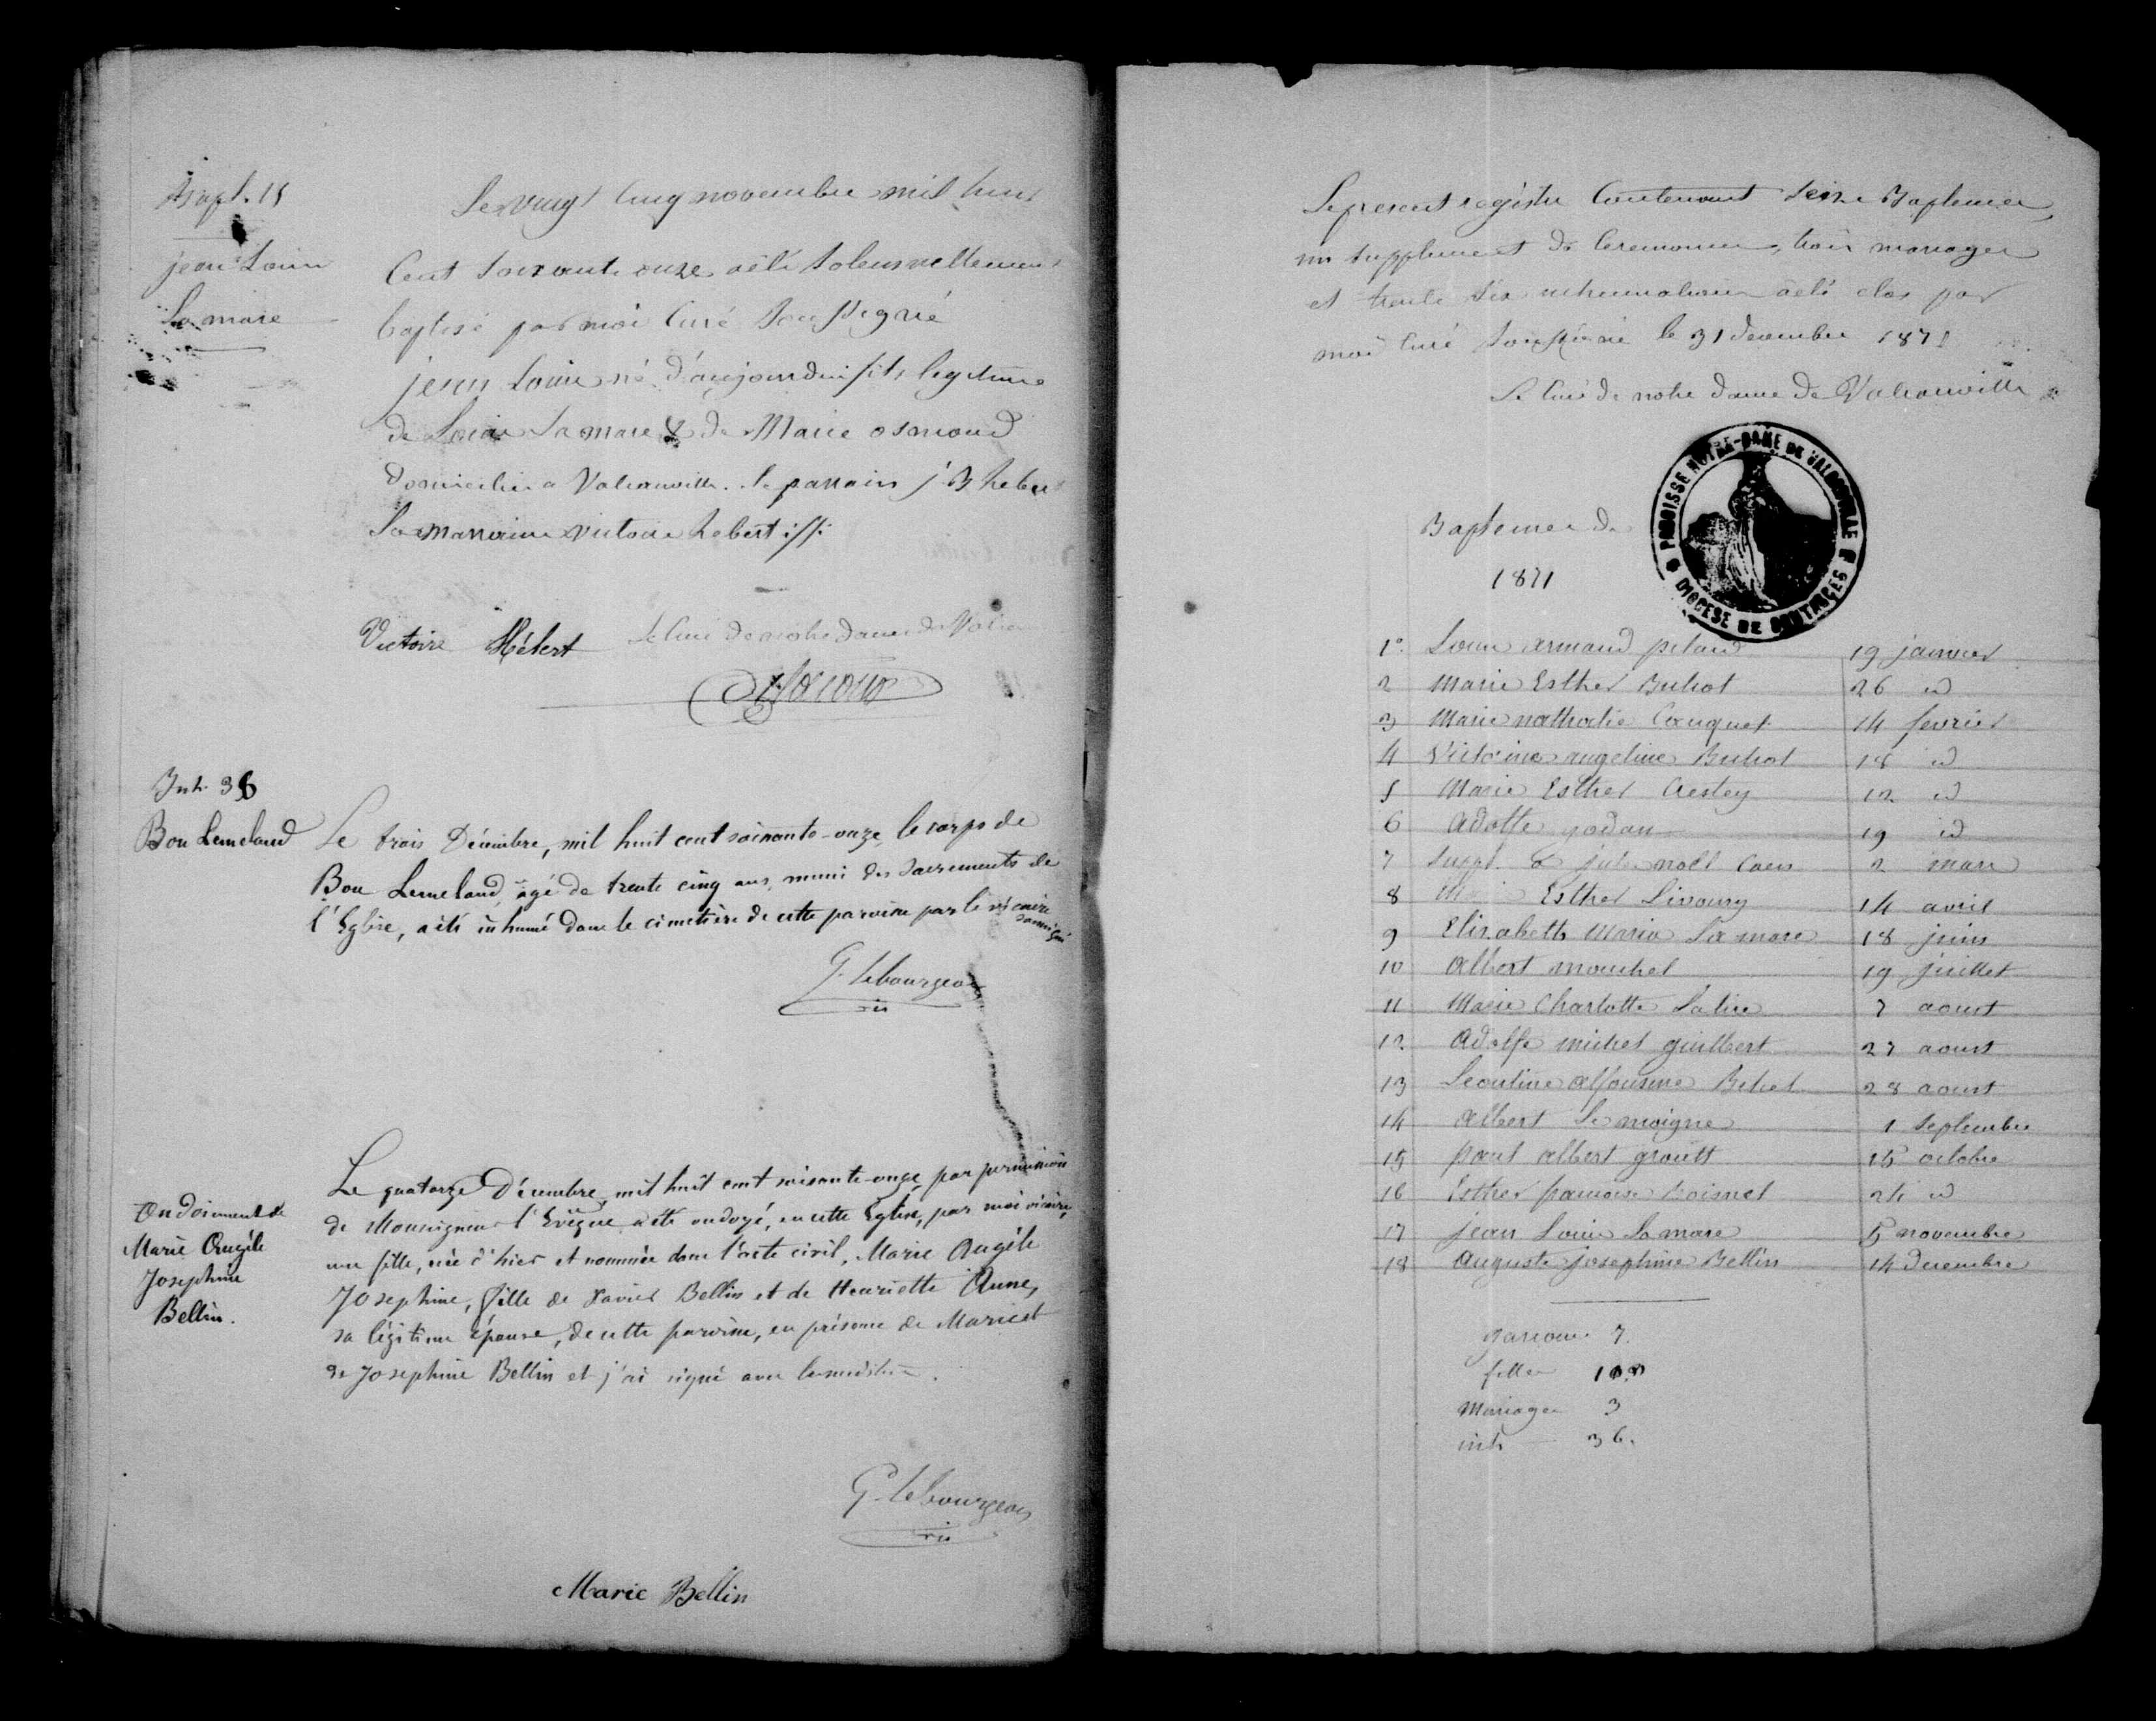 Bapt. 15
jean Louis
Lamare
Le vingt cinq novembre mil huit
Cent soixante onze a été solennellement
baptisé par moi Curé soussigné
jean Louis né d'aujourduis fils legitime
de Louis Lamare & de Marie osmond
domicilies a Valcanville. le parrain j. B hebert
La marraine victoire hebert :/f:
Victoire Hébert Le Curé de notre dame de Valca
Inh. 36
Bon Lemeland
Le trois Décembre, mil huit cent soixante-onze, le corps de
Bon Lemeland, âgé de trente cinq ans, muni des Sacrements de
l'Eglise, a été inhumé dans le cimetière de cette paroisse par le vicaire
soussigné
G. Lebourgeois
vic
Ondoiement de
Marie Angèle
Josephine
Bellin.
Le quatorze Décembre, mil huit cent soixante-onze, par permission
de Monseigneur l'Evêque a été ondoyé, en cette Eglise, par moi vicaire,
une fille, née d'hier et nommée dans l'acte civil, Marie Angèle
Josephine, fille de Xavier Bellin et de Henriette Anne,
sa légitime épouse, de cette paroisse, en présence de Marie et
de Josephine Bellin et j'ai signé avec
G. Lebourgeois
vic
Marie Bellin
Le present registre Contenant Seize Baptemes,
un supplement de Ceremonies, trois mariages
et trente six inhumations a été clos par
moi Curé soussigné le 31 decembre 1871
Le Curé de notre dame de Valcanville
PAROISSE NOTRE-DAME DE VALCANVILLE
DIOCESE DE COUTANCES
Baptemes de
1871
1° Louis armand pitaud 19 janvier
2 Marie Esther Buhot 26 id
3 Marie nathalie Cauquet 14 fevrier
4 Victoire angeline Buhot 18 id
5 Marie Esther 12 id
6 Adolfe godan 19 id
7 suppl. de jule noël Caen 2 mars
8 Esther Livoury 14 avril
9 Elisabeth Maria Lamare 18 juin
10 albert mouchel 19 juillet
11 Marie Charlotte Latire 7 aoust
12 Adolfe michel guilbert 27 aoust
13 Leontine alfonsine Buhot 28 aoust
14 albert Lemoigne 1 septembre
15 paul albert groult 15 octobre
16 Esther francoise Voisnel 24 id
17 jean Louis Lamare 5 novembre
18 Auguste josephine Bellin 14 decembre
garcons 7.
filles 10
Mariages 3
inh 36.